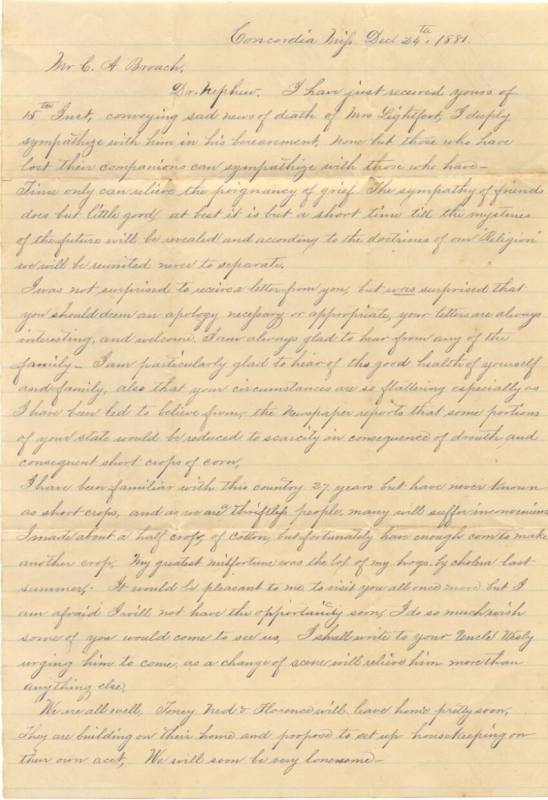 Concordia Miss Dec 24th, 1881.
Mr C. A Broach,
Dr. Nephew. I have just received yours of
15th Inst, conveying sad news of death of Mrs Lightfoot, I deeply
sympathize with him in his bereavment, none but those who have
lost their companions can sympathize with those who have—
Time only can relieve the poignancy of grief The sympathy of friends
does but little good at best it is but a short time till the mysteries
of the future will be revealed and according to the doctrines of our "Religion"
we will be reunited never to separate.
I was not surprised to receive a letter from you, but was surprised that
you should deem an apology necessary or appropriate, your letters are always
interesting, and welcome. I am always glad to hear from any of the
family— I am particularly glad to hear of the good health of yourself
and family, also that your circumstances are so flattering especially as
I have been led to believe from, the Newspaper reports that some portions
of your state would be reduced to scarcity in consequence of drouth, and
consequent short crops of corn,
I have been familiar with this country 27 years but have never known
as short crops, and as we are thriftless people, many will suffer inconvenience
I made about a half crop, of cotton, but fortunately have enough corn to make
another crop. My greatest misfortune was the loss of my hogs by cholera last
summer,- It would be pleasant to me to visit you all once more but I
am afraid I will not have the opportunity soon, I do so much wish
some of you would come to see us, I shall write to your Uncle Wesly
urging him to come, as a change of scene will relieve him more than
anything else,
We are all well, Toney Ned & Florence will leave home pretty soon,
They are building on their home and propose to set up housekeeping on
their own acct, We will soon be very lonesome—